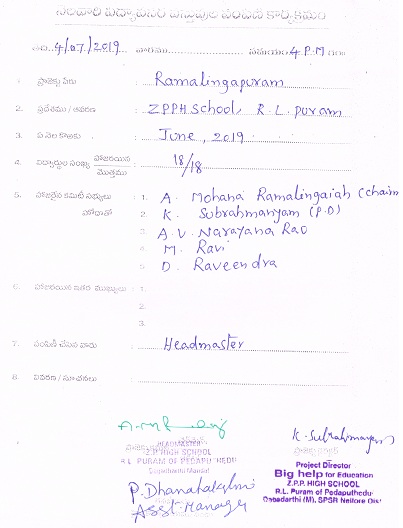 నెలవారీ విద్యోపకరణ వస్తువుల పంపిణీ కార్యక్రమం
తేది 4/07/2019 వారము సమయం 4 P.M గంట
1. ప్రాజెక్టు పేరు : Ramalingapuram
2. ప్రదేశము / ఆవరణ : ZPPH School, R.L. Puram
3. ఏ నెల కొరకు : June, 2019
4. విద్యార్థుల సంఖ్య హాజరయిన : 18/18
మొత్తము
5. హాజరైన కమిటీ సభ్యులు : 1. A. Mohana Ramalingaiah (chairm
హోదాతో 2. K. Subrahmanyam (P.D)
3 A.V. Narayana Rao
4 M. Ravi
5 D. Raveendra
6. హాజరయిన ఇతర ముఖ్యులు : 1.
2.
3.
7. పంపిణీ చేసిన వారు : Headmaster
8. వివరణ / సూచనలు :
K. Subrahmanyam
HEADMASTER
Z.P. HIGH SCHOOL
R.L. PURAM OF PEDAPUTHEDU
Dagadarthi Mandal
Project Director
Big help for Education
Z.P.P. HIGH SCHOOL
R.L. Puram of Pedaputhedu
Dagadarthi (M), SPSR Nellore Dist
P. Dhanalakshmi
Asst. Manager